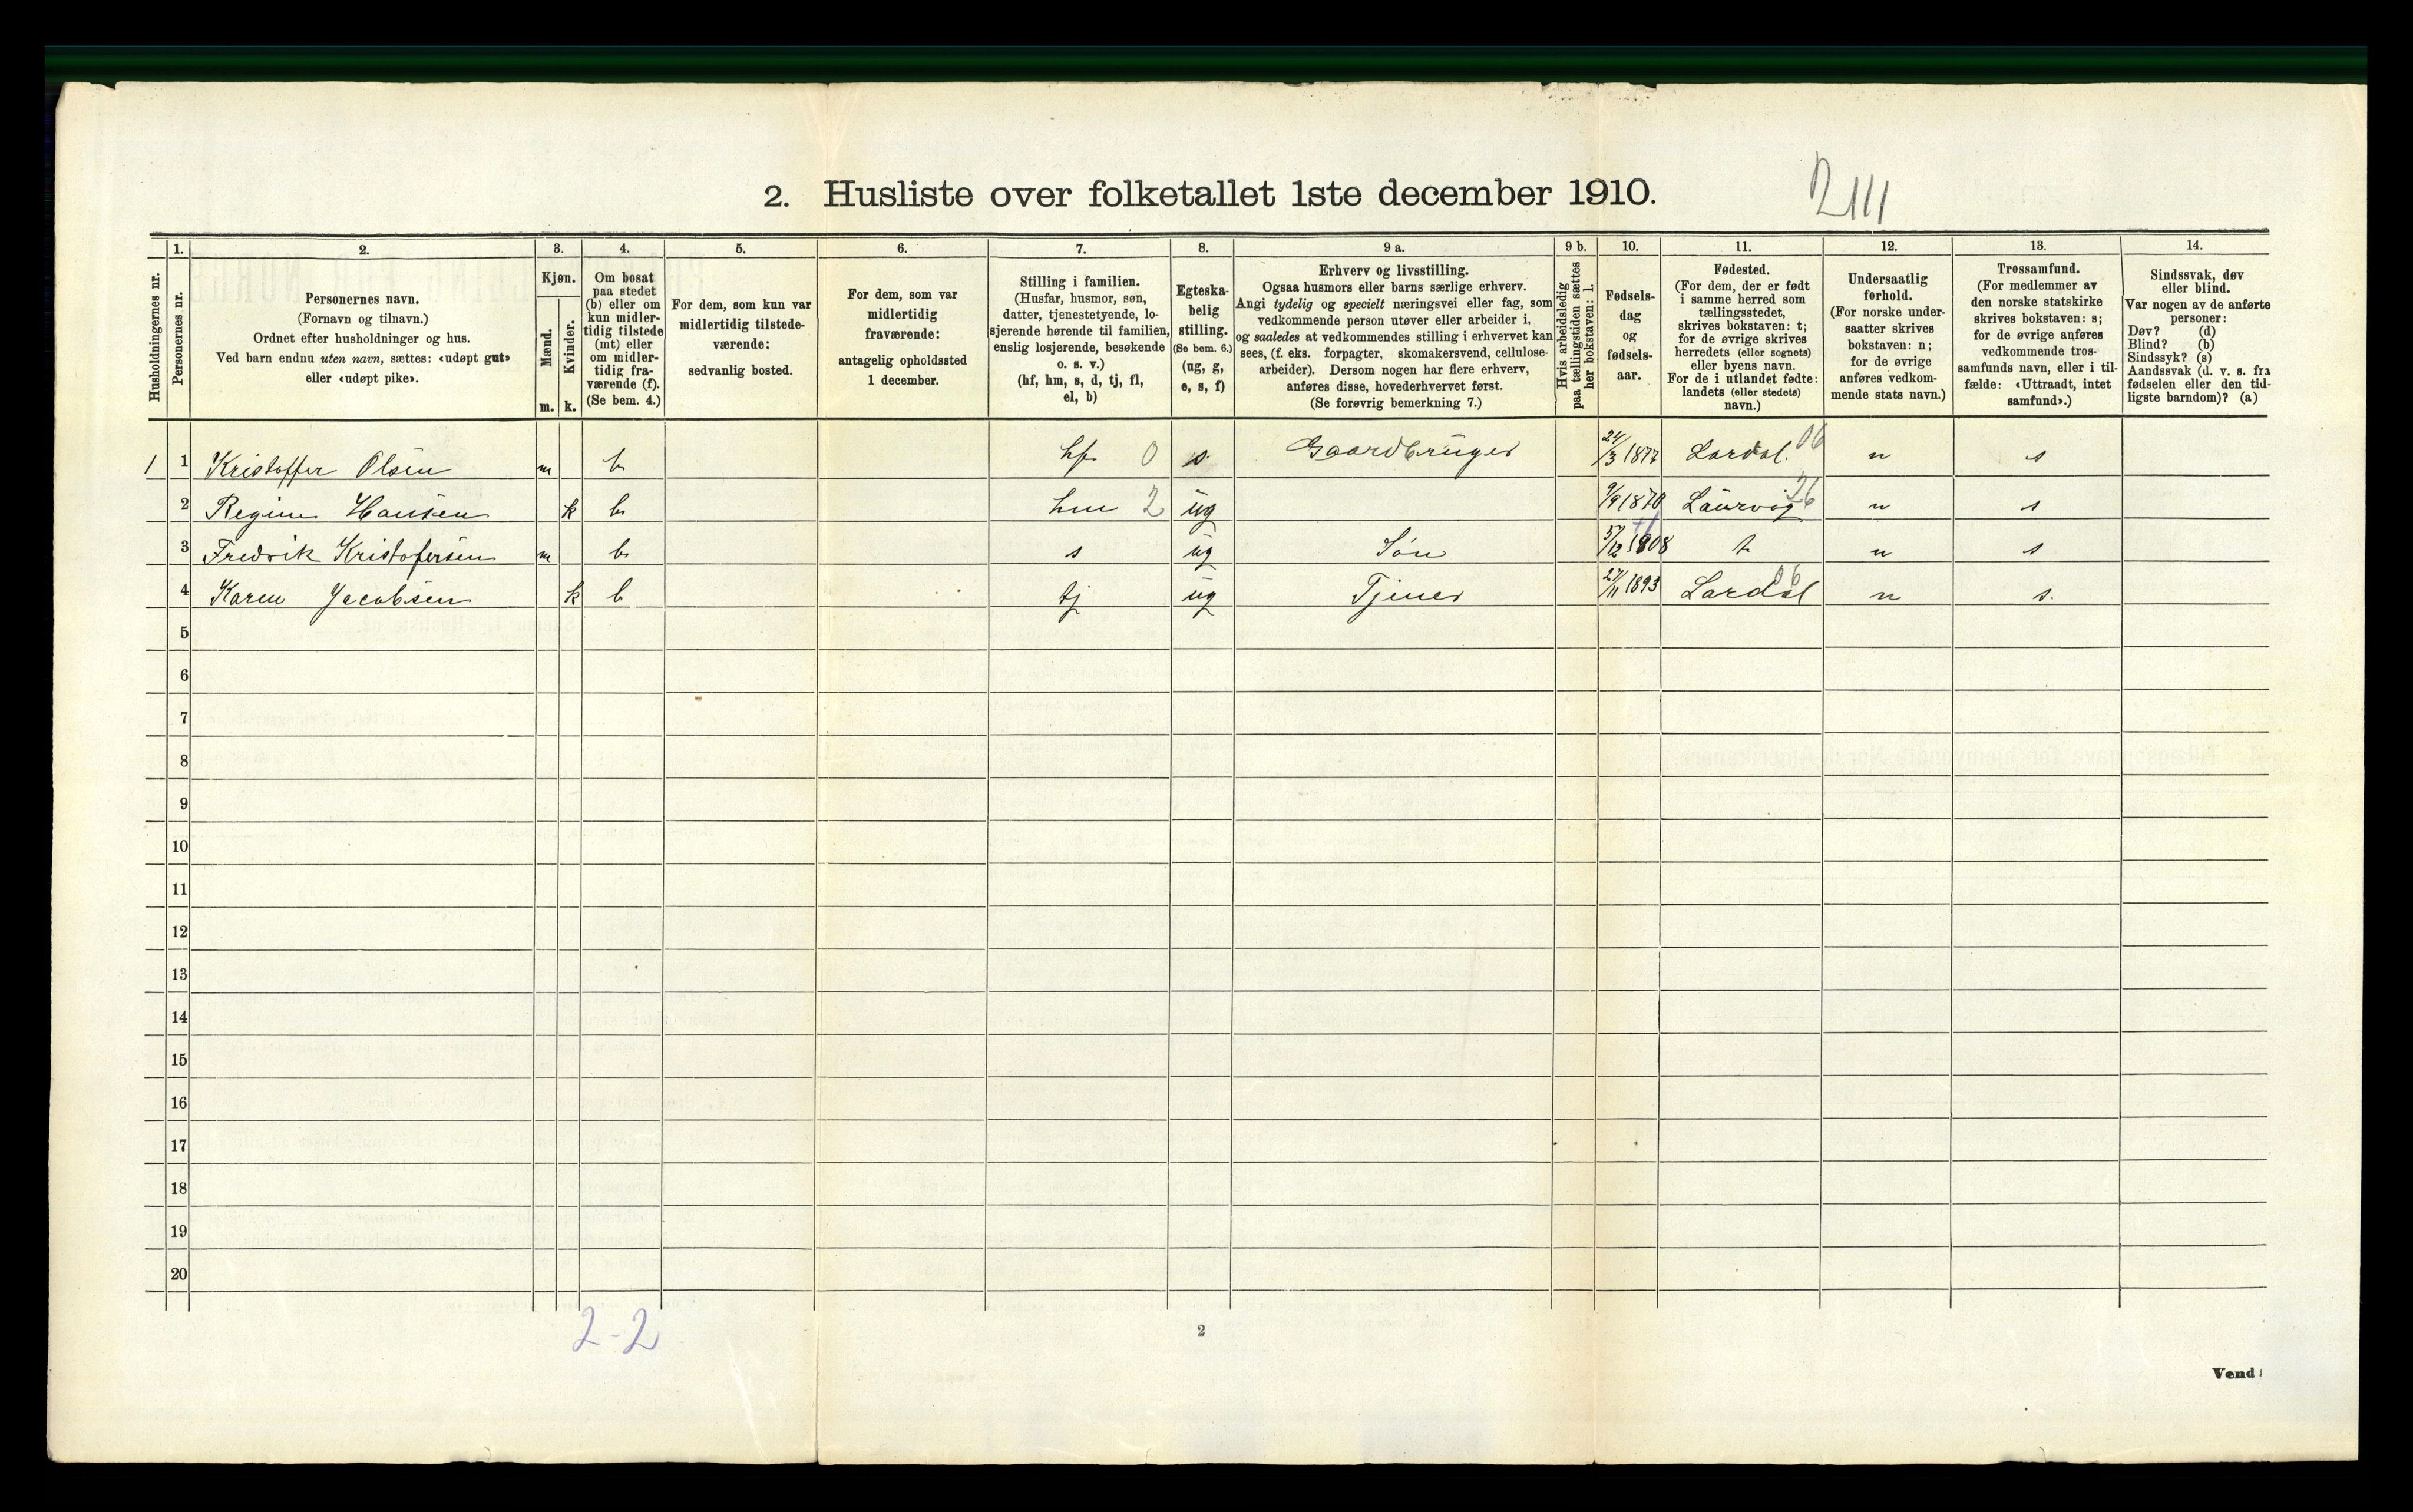 2. Husliste over folketallet 1ste december 1910.
Husholdningernes nr.
1.
Personernes nr.
2.
Personernes navn.
(Fornavn og tilnavn.)
Ordnet efter husholdninger og hus.
Ved barn endnu uten navn, sættes: «udøpt gut»
eller «udøpt pike».
3.
Kjøn.
Mænd.
Kvinder.
m. k.
4.
Om bosat
paa stedet
(b) eller om
kun midler-
tidig tilstede
(mt) eller
om midler-
tidig fra-
værende (f).
(Se bem. 4.)
5.
For dem, som kun var
midlertidig tilstede-
værende:
sedvanlig bosted.
6.
For dem, som var
midlertidig
fraværende:
antagelig opholdssted
1 december.
7.
Stilling i familien.
(Husfar, husmor, søn,
datter, tjenestetyende, lo-
sjerende hørende til familien,
enslig losjerende, besøkende
o. s. v.)
(hf, hm, s, d, tj, fl,
el, b)
8.
Egteska-
belig
stilling.
(Se bem. 6.)
(ug, g,
e, s, f)
9 a.
Erhverv og livsstilling.
Ogsaa husmors eller barns særlige erhverv.
Angi tydelig og specielt næringsvei eller fag, som
vedkommende person utøver eller arbeider i,
og saaledes at vedkommendes stilling i erhvervet kan
sees, (f. eks. forpagter, skomakersvend, cellulose-
arbeider). Dersom nogen har flere erhverv,
anføres disse, hovederhvervet først.
(Se forøvrig bemerkning 7.)
9 b.
Hvis arbeidsledig
paa tællingstiden sættes
her bokstaven: l.
10.
Fødsels-
dag
og
fødsels-
aar.
11.
Fødested.
(For dem, der er født
i samme herred som
tællingsstedet,
skrives bokstaven: t;
for de øvrige skrives
herredets (eller sognets)
eller byens navn.
For de i utlandet fødte:
landets (eller stedets)
navn.)
12.
Undersaatlig
forhold.
(For norske under-
saatter skrives
bokstaven: n;
for de øvrige
anføres vedkom-
mende stats navn.)
13.
Trossamfund.
(For medlemmer av
den norske statskirke
skrives bokstaven: s;
for de øvrige anføres
vedkommende tros-
samfunds navn, eller i til-
fælde: «Uttraadt, intet
samfund».)
14.
Sindssvak, døv
eller blind.
Var nogen av de anførte
personer:
Døv? (d)
Blind? (b)
Sindssyk? (s)
Aandssvak (d. v. s. fra
fødselen eller den tid-
ligste barndom)? (a)
1 1 Kristoffer Olsen m b hf 0 s Gaardbruger 24/3 1877 Lardal. 06 n s
2 Regine Hansen k b hm 2 ug 9/9 1870 Laurvig n s
3 Fredrik Kristofersen m b s ug Søn 5/12 1908 t n s
4 Karen Jacobsen k b tj ug Tjener 27/11 1893 Lardal n s.
5
6
7
8
9
10
11
12
13
14
15
16
17
18
19
20
2-2
2
Vend